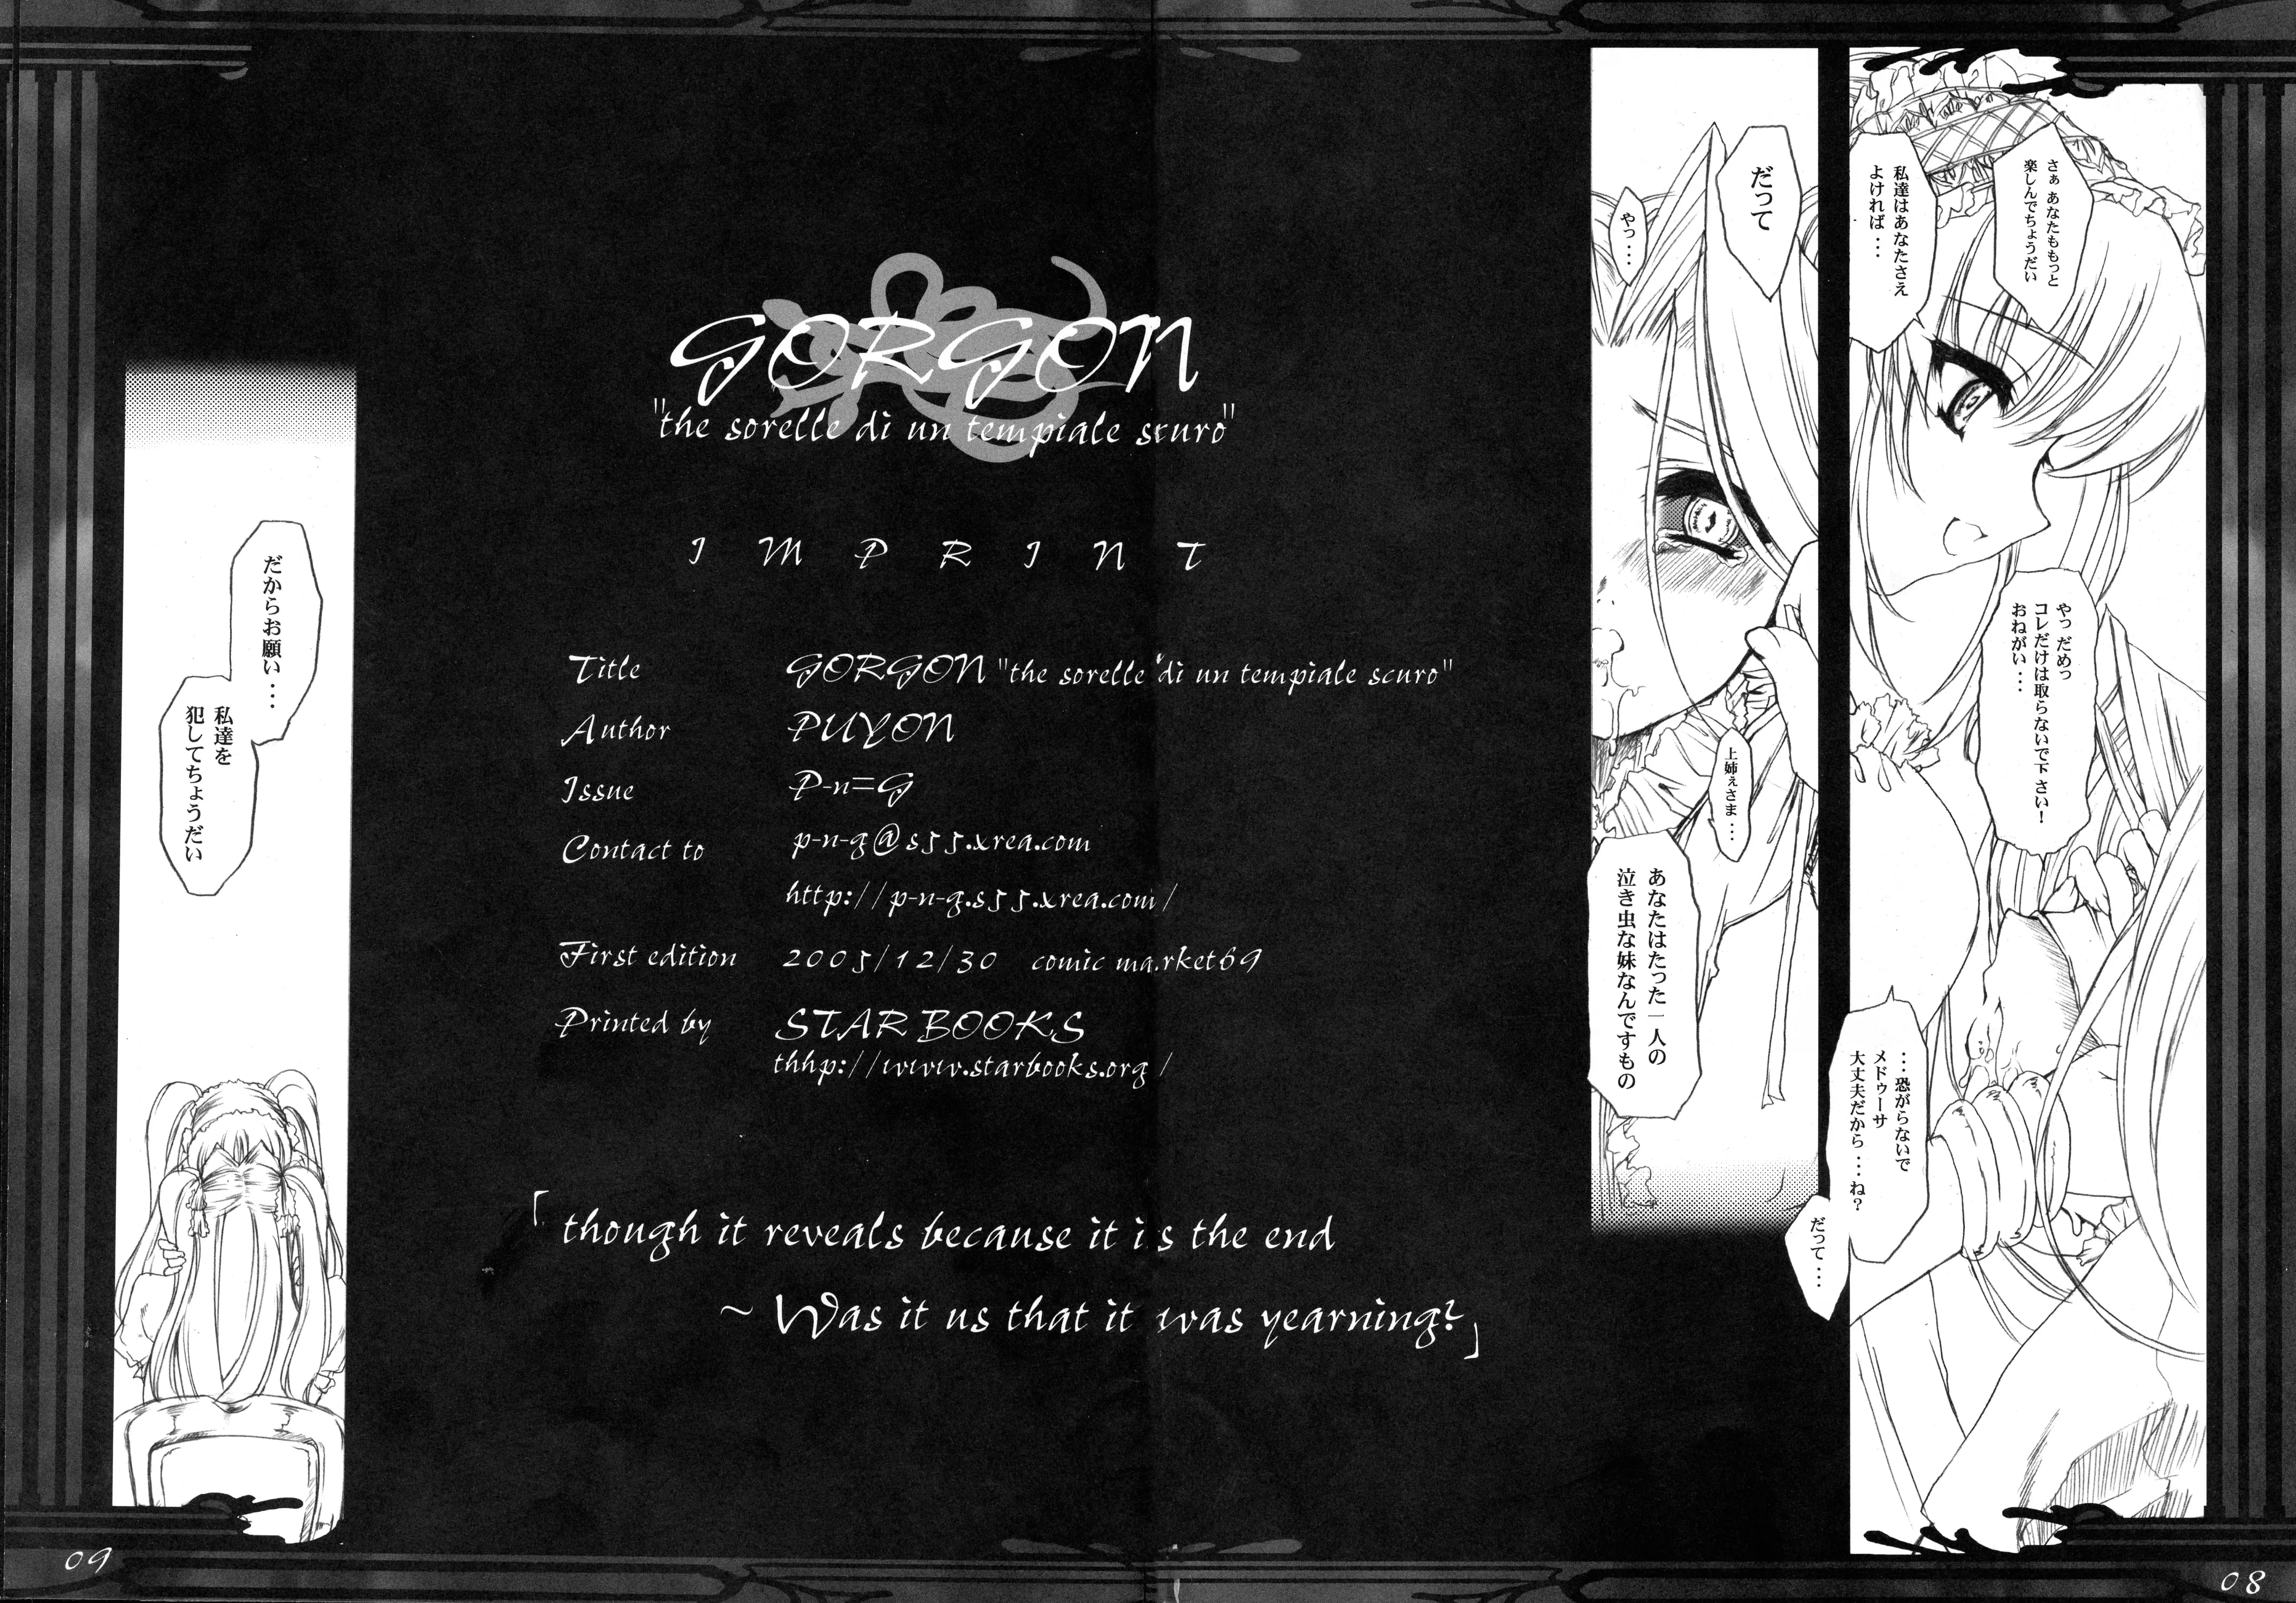 さぁ あなたももっと
楽しんでちょうだい
私達はあなたさえ
よければ・・
やっ だめっ
コレだけは取らないで下さい！
おねがい・・・
・・・恐がらないで
メドゥーサ
大丈夫だから・・・ね？
だって・・・
だって
やっ・・・
上姉ぇさま・・・
あなたはたった一人の
泣き虫な妹なんですもの
GORGON
"the sorelle di un tempiale scuro"
IMPRINT
Title GORGON "the sorelle di un tempiale scuro"
Author PUYON
Issue P-n=G
Contact to p-n-g@s55.xrea.com
http://p-n-g.s55.xrea.com/
First edition 2005/12/30 comic market69
Printed by STAR BOOKS
thhp://www.starbooks.org/
「though it reveals because it is the end
～Was it us that it was yearning?」
だからお願い・・・
私達を
犯してちょうだい
09
08